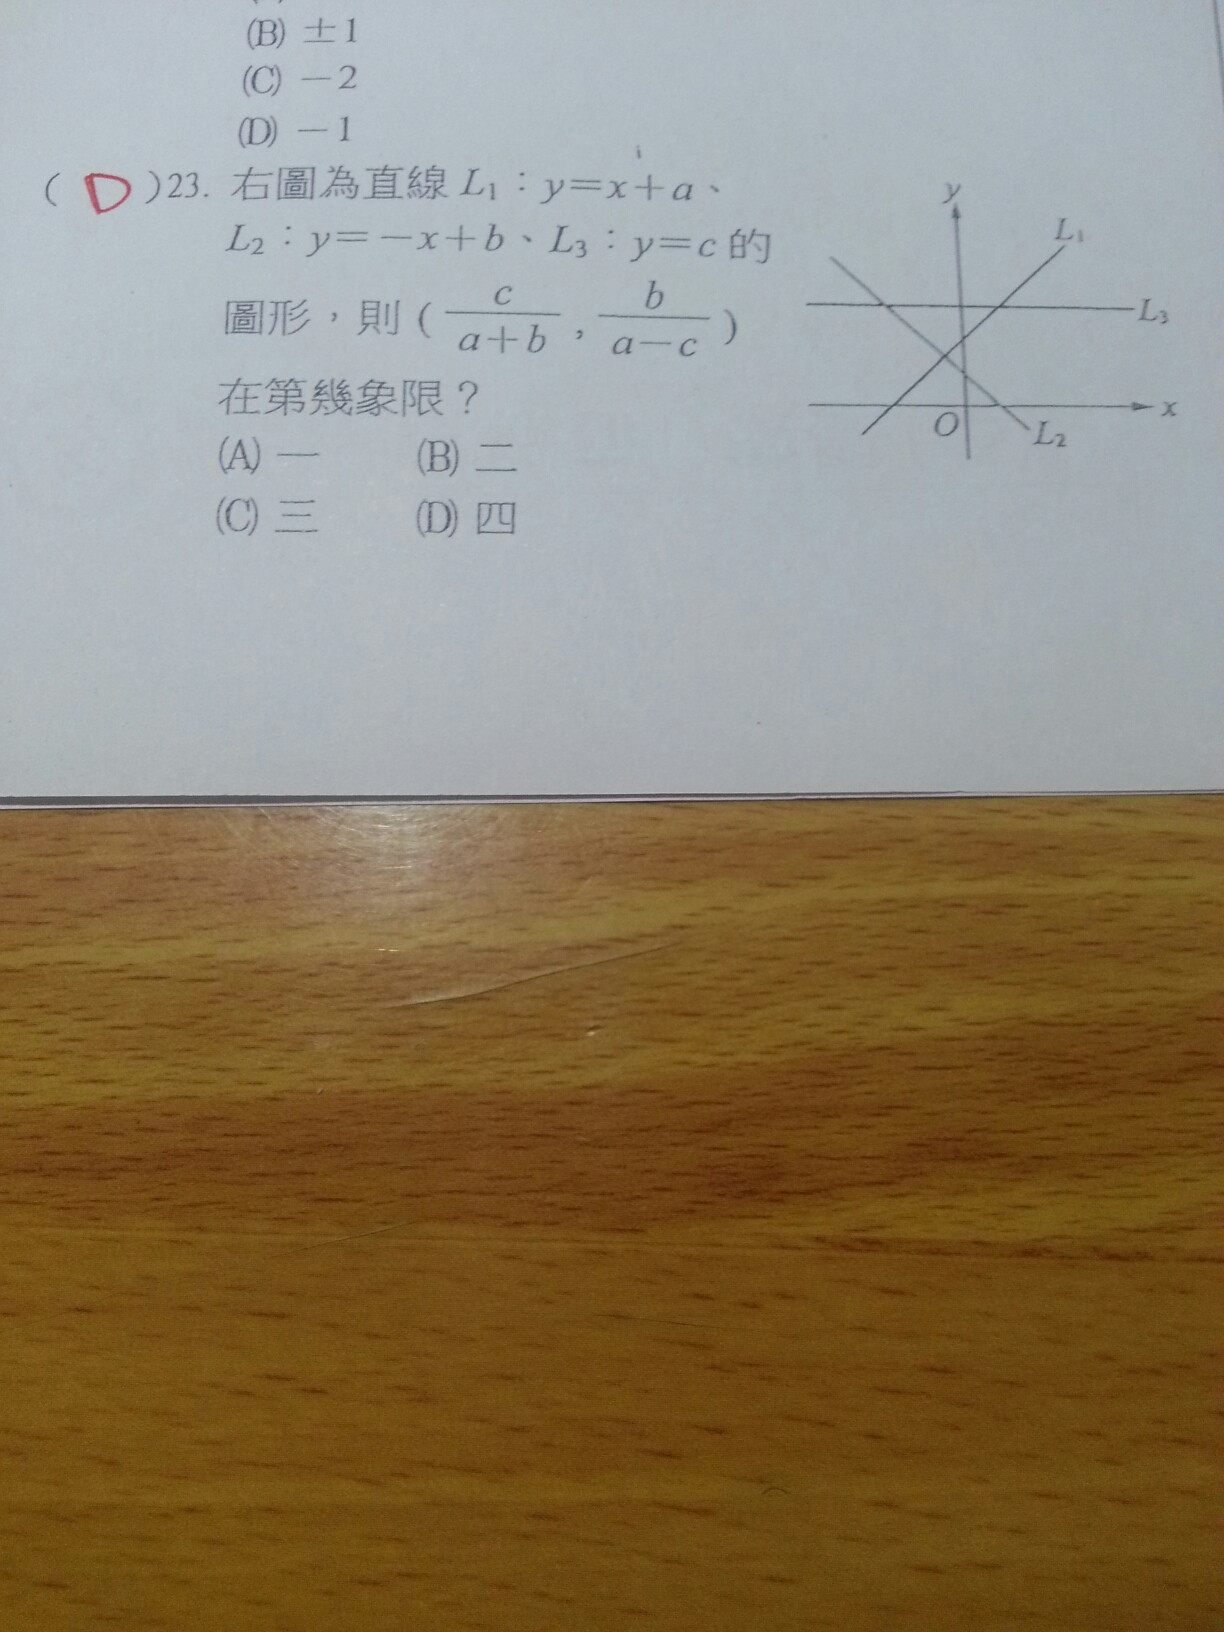 (B) ±1
(C) －2
(D) －1
( D )23. 右圖為直線 L₁：y=x+a、
L₂：y=－x+b、L₃：y=c 的
圖形，則 ( c/(a+b) , b/(a－c) )
在第幾象限？
(A) 一 (B) 二
(C) 三 (D) 四
y
L₁
L₃
x
O
L₂